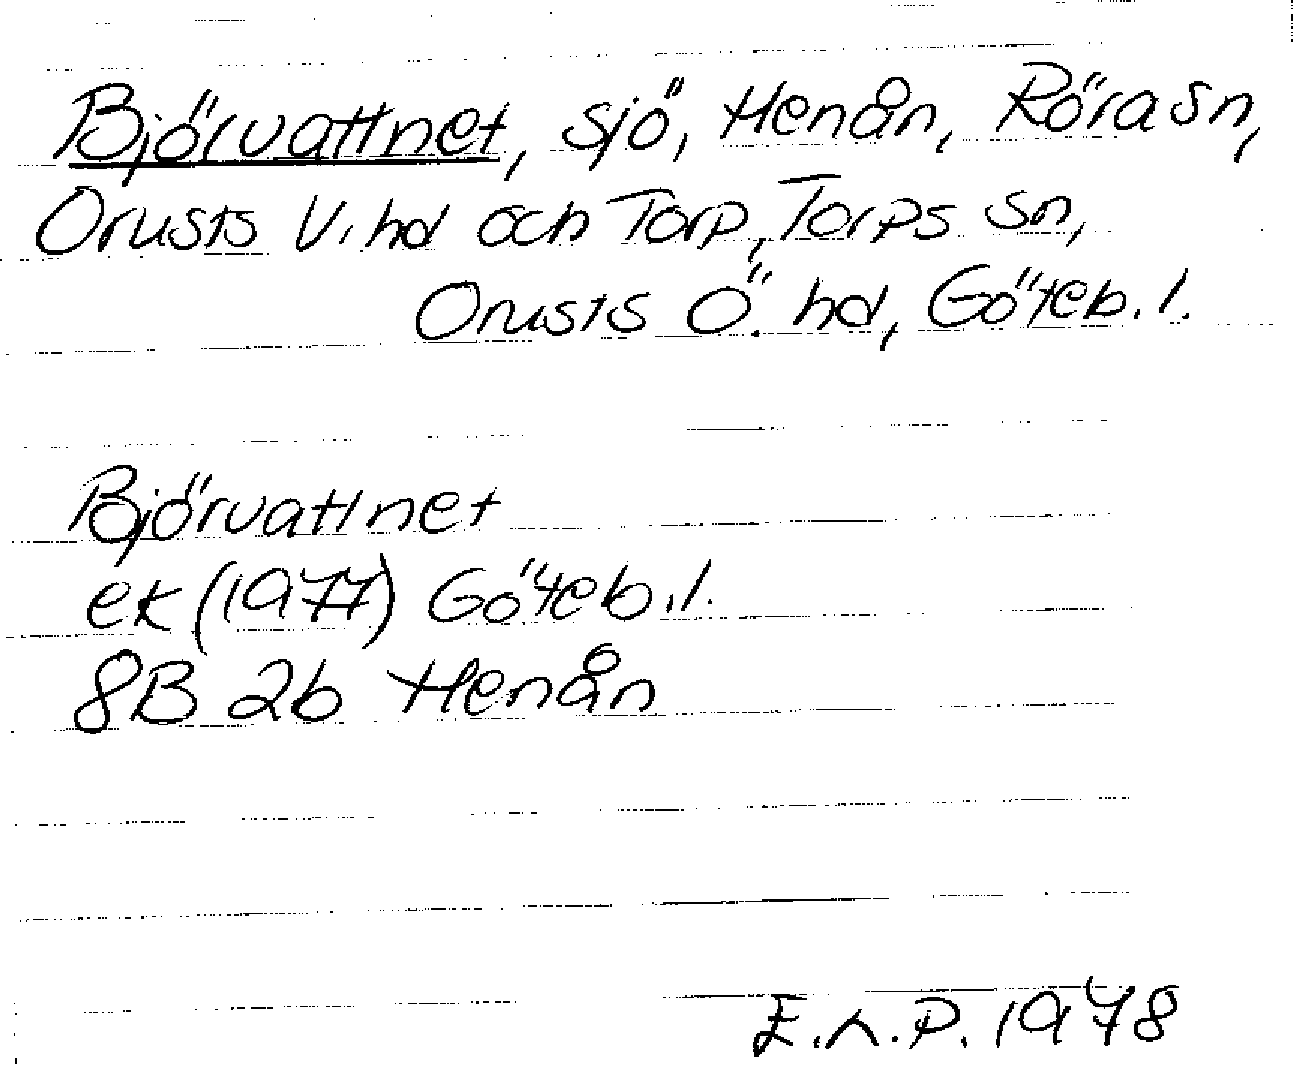 Björvattnet, sjö, Henån, Röra sn,
Orusts V. hd och Torp, Torps sn,
Orusts Ö. hd, Göteb. l.
Björvattnet
ek (1977) Göteb. l.
8B 2b Henån
E.A.P. 1978